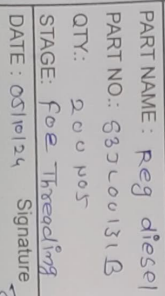 PART NAME: Reg diesel
PART NO.: 83JL00131B
QTY.: 200 NOS
STAGE: foe Threading
DATE: 05/10/24 Signature